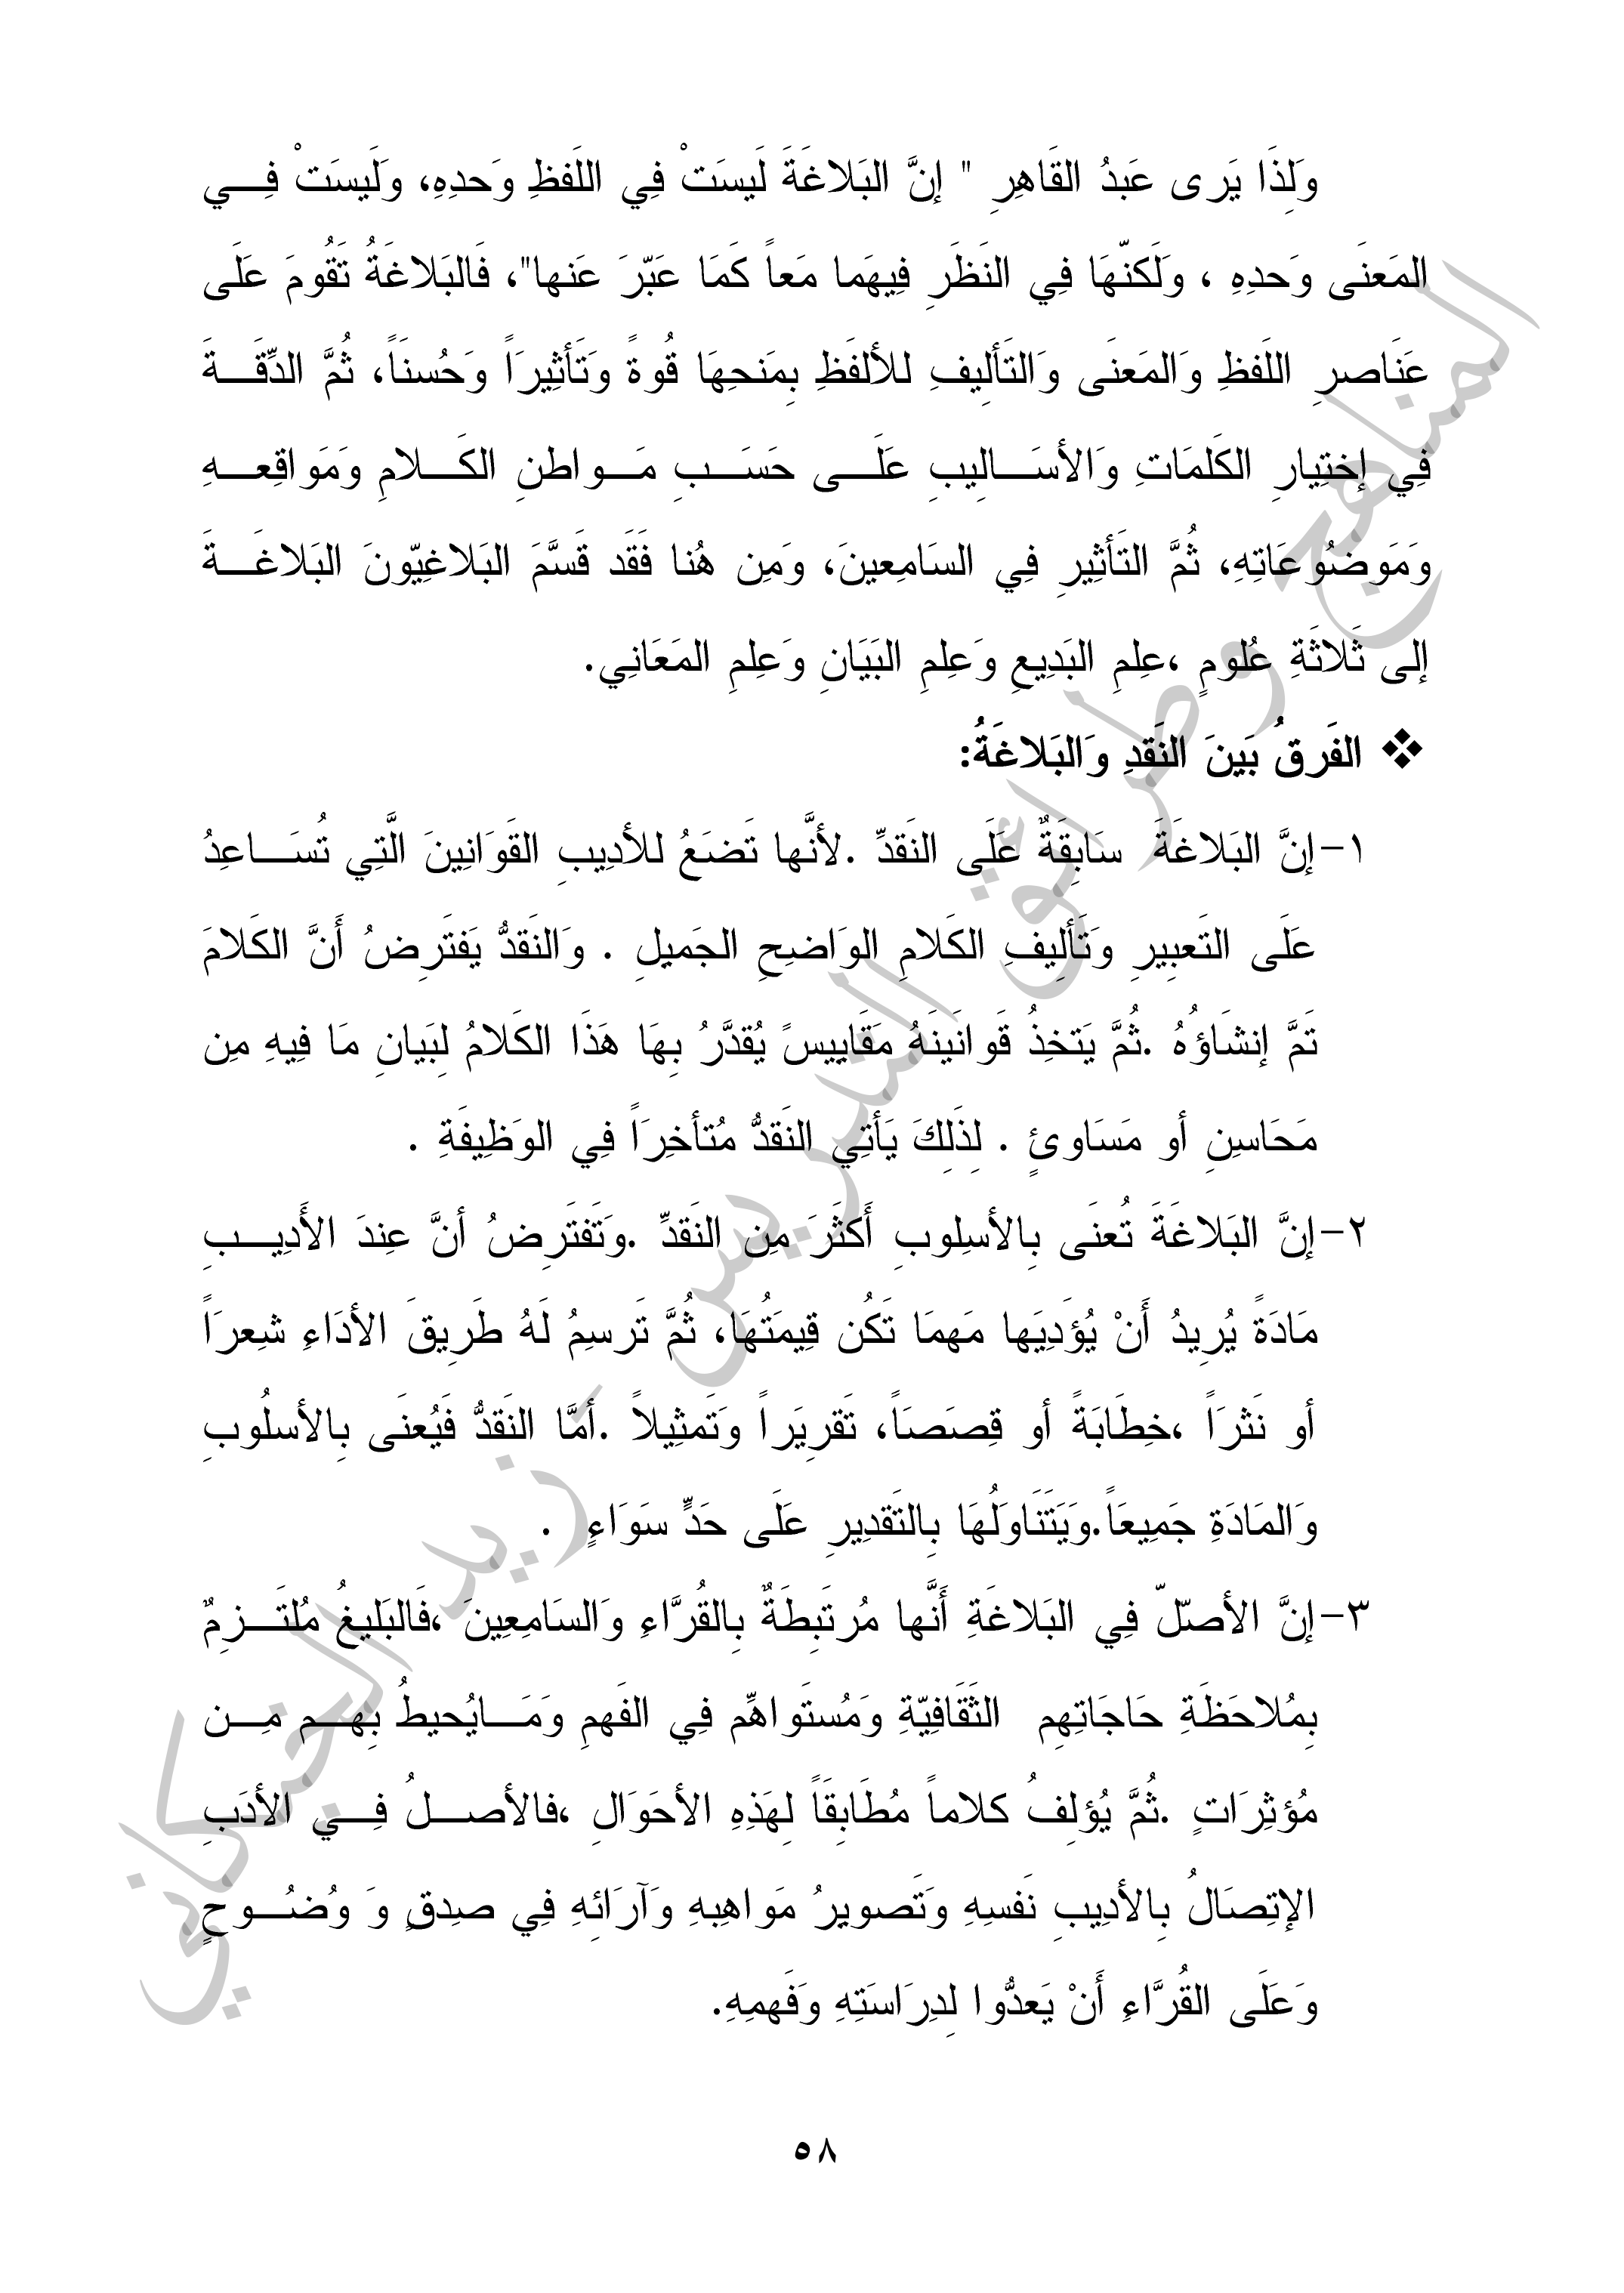 وَلِذَا يَرى عَبدُ القَاهِرِ " إنَّ البَلاغَةَ لَيسَتْ فِي اللَفظِ وَحدِهِ، وَلَيسَتْ فِــي
المَعنَى وَحدِهِ ، وَلَكنّهَا فِي النَظَرِ فِيهَما مَعاً كَمَا عَبّرَ عَنها"، فَالبَلاغَةُ تَقُومَ عَلَى
عَنَاصرِ اللَفظِ وَالمَعنَى وَالتَألِيفِ للألفَظِ بِمَنحِهَا قُوةً وَتَأثِيرَاً وَحُسنَاً، ثُمَّ الدِّقَــةَ
فِي إختِيارِ الكَلمَاتِ وَالأسَــالِيبِ عَلَــى حَسَــبِ مَــواطنِ الكَــلامِ وَمَواقِعــهِ
وَمَوَضُوعَاتِهِ، ثُمَّ التَأثِيرِ فِي السَامِعينَ، وَمِن هُنا فَقَد قَسَّمَ البَلاغِيّونَ البَلاغَــةَ
إلى ثَلاثَةِ عُلومٍ ،عِلمِ البَدِيعِ وَعِلمِ البَيَانِ وَعِلمِ المَعَانِي.
❖ الفَرقُ بَينَ النَقدِ وَالبَلاغَةُ:
١-إنَّ البَلاغَةَ سَابِقَةٌ عَلَى النَقدِّ .لأنَّها تَضَعُ للأدِيبِ القَوَانِينَ الَّتِي تُسَــاعِدُ
عَلَى التَعبِيرِ وَتَألِيفِ الكَلامِ الوَاضِحِ الجَميلِ . وَالنَقدُّ يَفتَرِضُ أَنَّ الكَلامَ
تَمَّ إنشَاؤُهُ .ثُمَّ يَتخِذُ قَوانَينَهُ مَقَاييسً يُقدَّرُ بِهَا هَذَا الكَلامُ لبَيانِ مَا فِيهِ مِن
مَحَاسِنِ أو مَسَاوئٍ . لِذَلِكَ يَأتِي النَقدُّ مُتأخِرَاً فِي الوَظِيفَةِ .
٢-إنَّ البَلاغَةَ تُعنَى بِالأسِلوبِ أَكثَرَ مِن النَقدِّ .وَتَفتَرِضُ أنَّ عِندَ الأَدِيــبِ
مَادَةً يُرِيدُ أَنْ يُؤَدِيَها مَهمَا تَكُن قِيمَتُهَا، ثُمَّ تَرسِمُ لَهُ طَرِيقَ الأدَاءِ شِعرَاً
أو نَثرَاً ،خِطَابَةً أو قِصَصَاً، تَقرِيَراً وَتَمثِيلاً .أمَّا النَقدُّ فَيُعنَى بِالأسلُوبِ
وَالمَادَةِ جَمِيعَاً.وَيَتَنَاوَلُهَا بِالتَقدِيرِ عَلَى حَدٍّ سَوَاءٍ .
٣-إنَّ الأصّلّ فِي البَلاغَةِ أَنَّها مُرتَبِطَةٌ بِالقُرَّاءِ وَالسَامِعِينَ ،فَالبَليغُ مُلتَــزِمٌ
بِمُلاحَظَةِ حَاجَاتِهِم الثَقَافِيّةِ وَمُستَواهِّم فِي الفَهمِ وَمَــايُحيطُ بِهــم مِــن
مُؤثِرَاتٍ .ثُمَّ يُؤلِفُ كلاماً مُطَابِقَاً لِهَذِهِ الأحَوَالِ ،فالأصــلُ فِــي الأدَبِ
الإتِصَالُ بِالأدِيبِ نَفسِهِ وَتَصويرُ مَواهِبهِ وَآرَائِهِ فِي صِدقٍ وَ وُضُــوحٍ
وَعَلَى القُرَّاءِ أَنْ يَعدُّوا لِدِرَاسَتِهِ وَفَهمِهِ.
٥٨
المناهج وطرائق التدريس - زيد الخيكاني